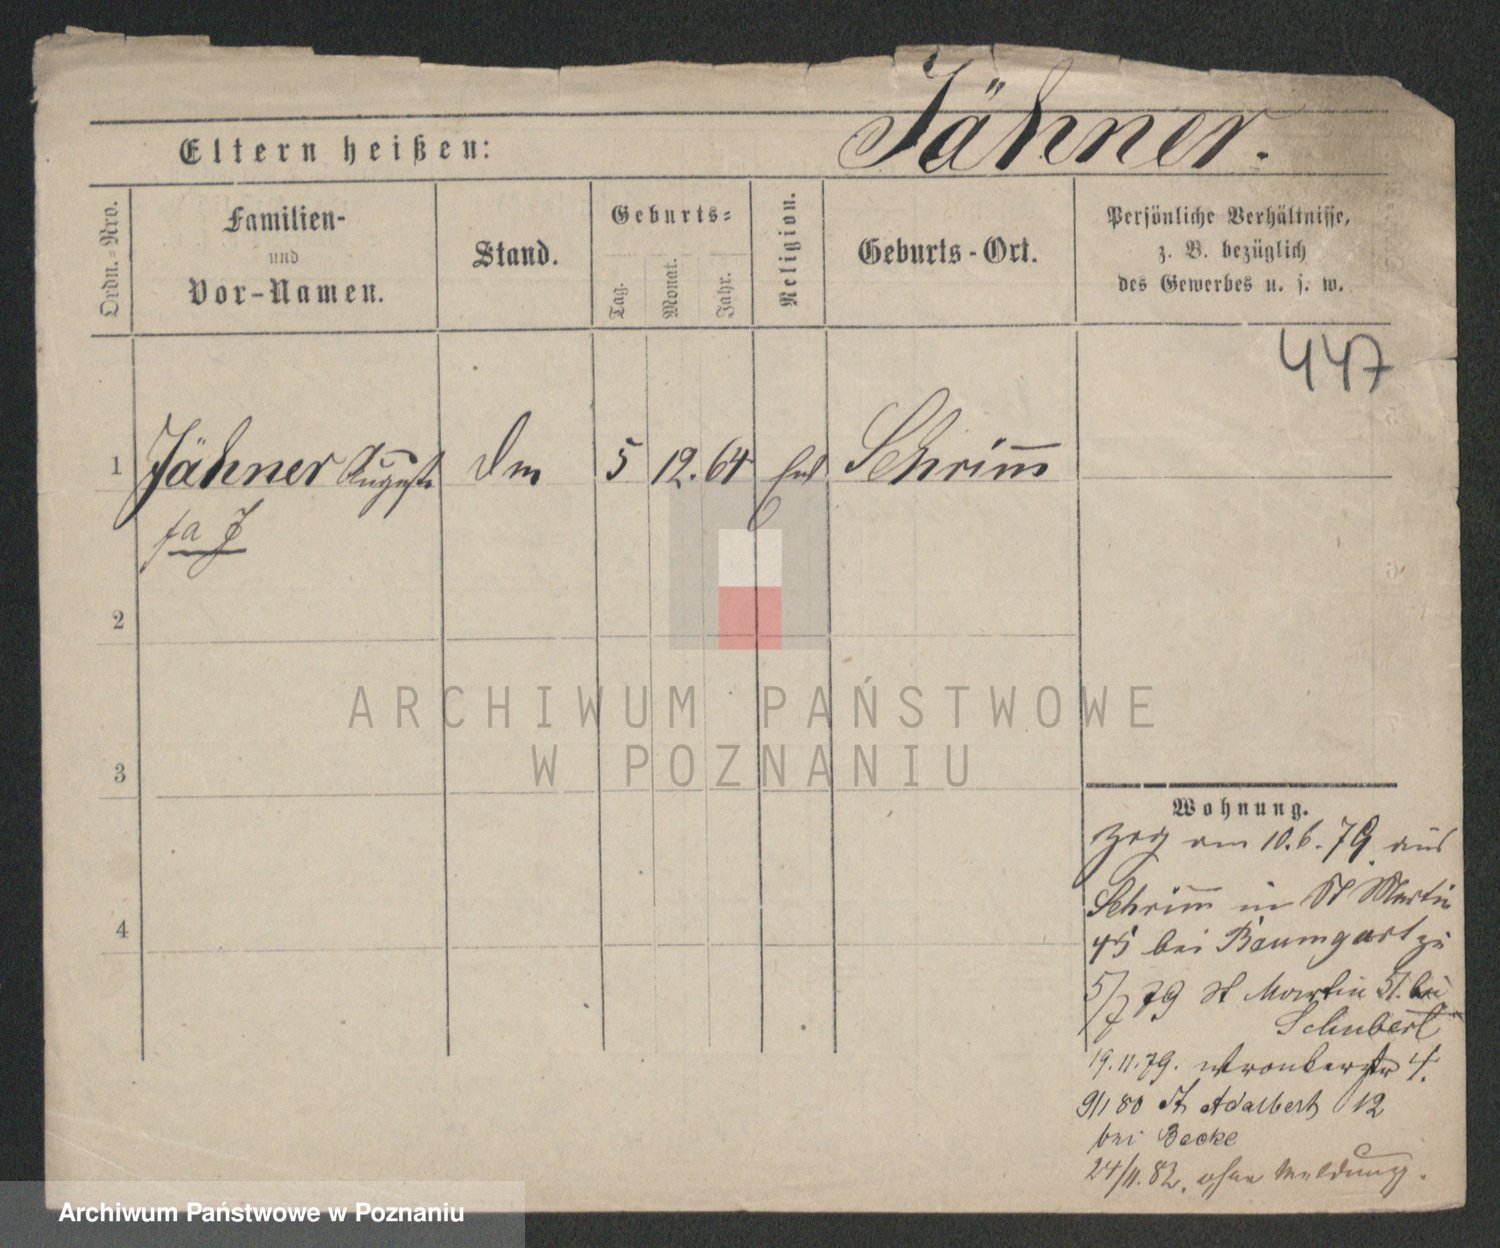 Jähner.
Eltern heißen:
Ordn.-Nro.
Familien-
und
Vor-Namen.
Stand.
Geburts-
Tag.
Monat.
Jahr.
Religion.
Geburts-Ort.
Persönliche Verhältnisse,
z. B. bezüglich
des Gewerbes u. s. w.
447
1 Jähner August 5 12. 64 Schrimm
2
3
4
Wohnung.
zog am 10.6.79 aus
Schrimm in St Martin
45 bei Baumgart zu
5/7 79 St Martin 51. bei
Schubert
19.11.79. Wronkerstr 4.
9/1 80 St Adalbert 12
bei Becke
24/11.82. ohne Meldung.
ARCHIWUM PAŃSTWOWE
W POZNANIU
Archiwum Państwowe w Poznaniu